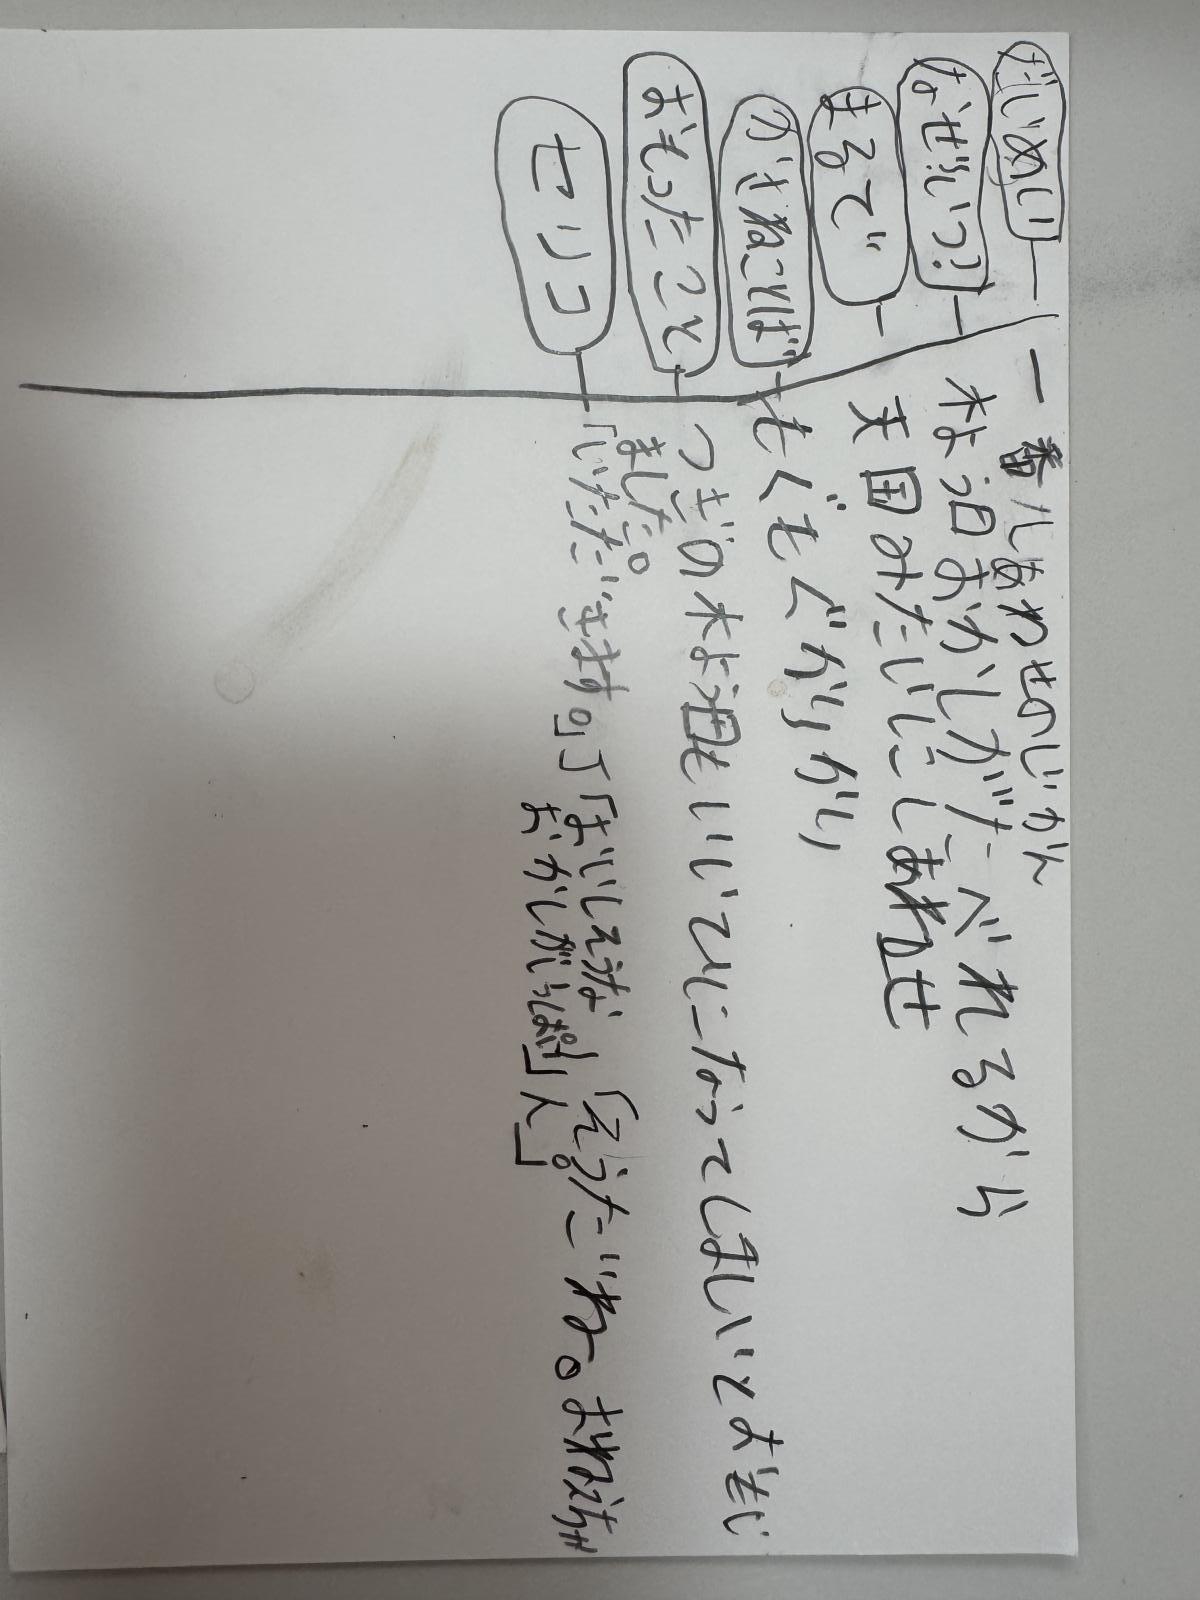 だいめい 一番しあわせのじかん
なぜ?いつ? 木よう日おかしがたべれるから
まるで 天国みたいにしあわせ
かさねことば もぐもぐかりかり
おもったこと つぎの木よう日もいいひになってほしいとおもい
ました。
セリフ 「いただきます。」「おいしそうな「そうだね。おねえちゃ
おかしがいっぱい」ん」